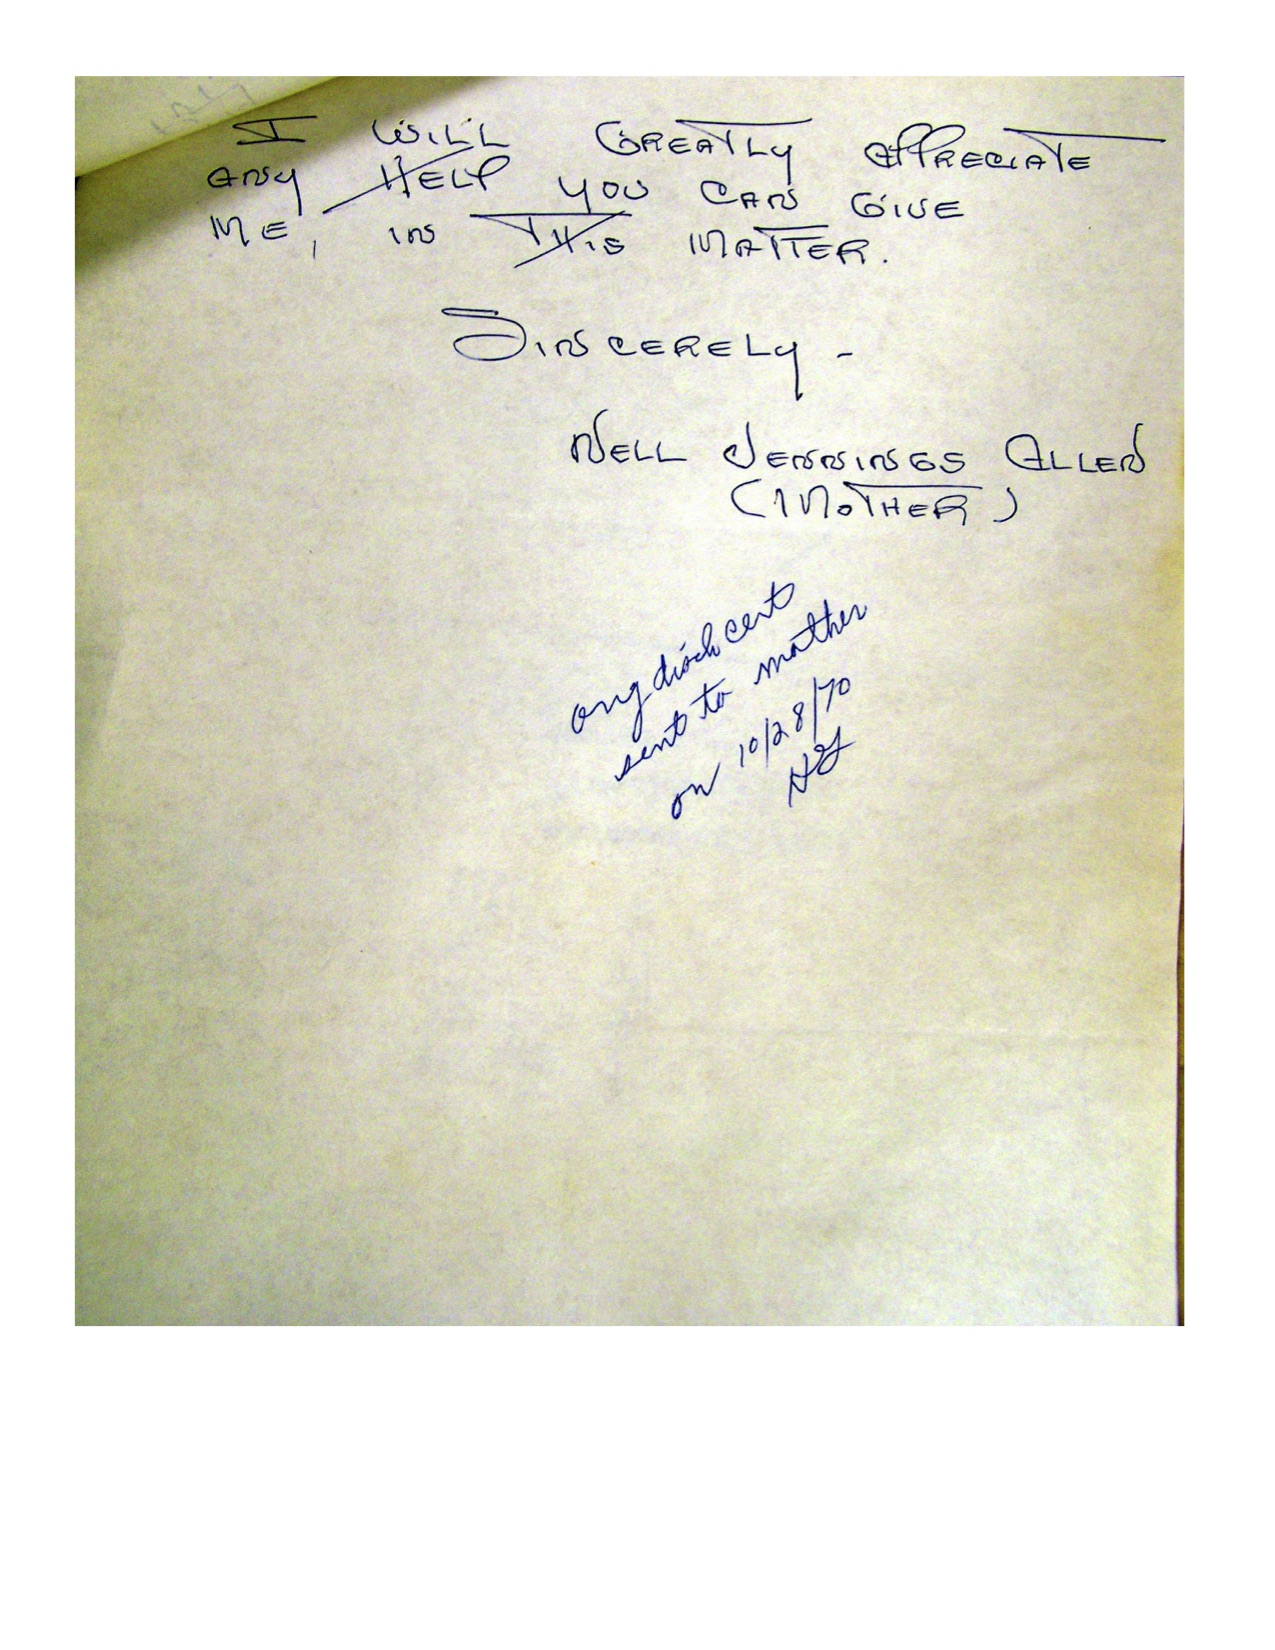 I WILL GREATLY APPRECIATE
ANY HELP YOU CAN GIVE
ME, IN THIS MATTER.
SINCERELY -
NELL JENNINGS ALLEN
(MOTHER)
org disch cert
sent to mother
on 10/28/70